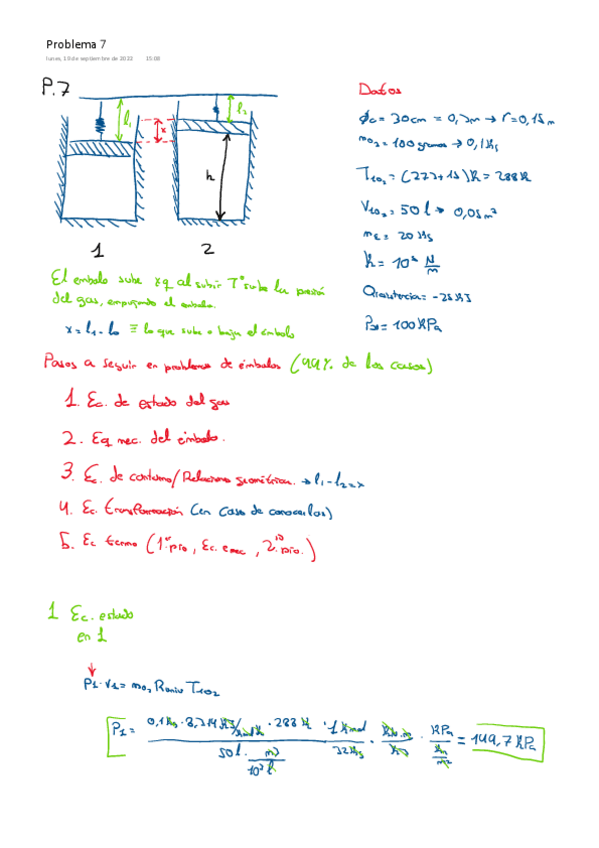 Problema 7
lunes, 19 de septiembre de 2022 15:08
P.7
Datos
l₁
x
l₂
h
1
2
φc = 30cm = 0,3m → r = 0,15m
mo₂ = 100 gramos → 0,1 Kg
T1o₂ = (273+15)K = 288K
V1o₂ = 50 l → 0,05m³
mE = 20 Kg
K = 10⁴ N/m
Qresistencia = -25 KJ
= 100 KPa
El embolo sube xq al subir Tª sube la presión
del gas, empujando el embolo.
x = l₁ - l₂ ≡ lo que sube o baja el émbolo
Pasos a seguir en problemas de émbolos (99% de los casos)
1. Ec. de estado del gas
2. Eq mec. del émbolo.
3. Ec. de contorno/Relaciones geométricas. → l₁-l₂=x
4. Ec. transformación (en caso de conocerlos)
5. Ec termo (1er pio, Ec. emec, 2do pio.)
1 Ec. estado
en 1
P1·V1 = mo₂ Runiv T1o₂
P1 = 0,1 Kg · 8,314 KJ/kmol K · 288 K / 50 l · m³/10³ l · 1 Kmol / 32 Kg · KN·m / KJ · KPa / KN/m² = 149,7 KPa